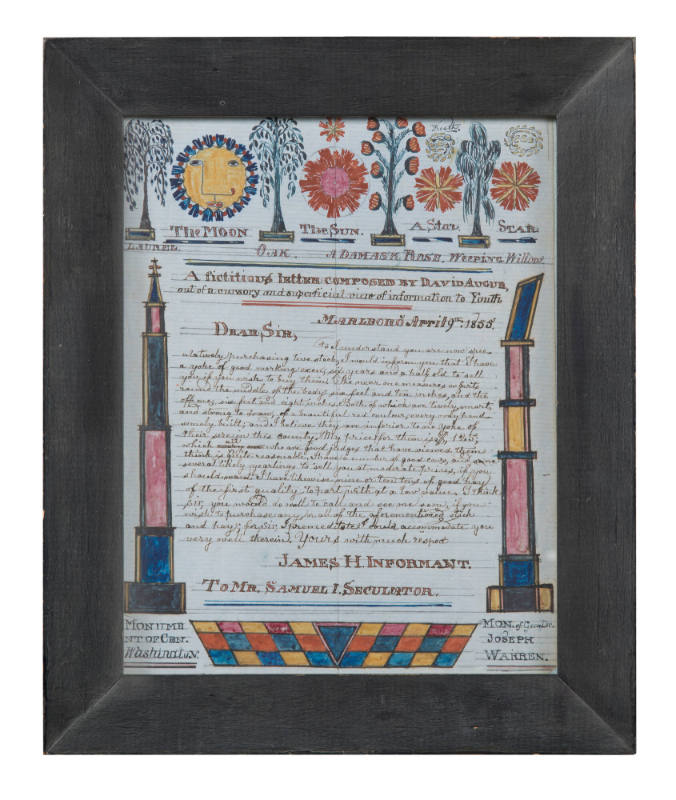 The Moon The Sun. A Star Star
Laurel. Oak. A Damask Rose. Weeping Willow
A fictitious letter composed by David Augur,
out of a cursory and superficial view of information to Youth
Marlboro, April 9th, 1855.
Dear Sir,
As I understand you are now spec-
ulatively purchasing live stock, I would inform you that I have
a yoke of good working oxen, six years and a half old to sell
you, if you wish to buy them. The near one measures
round the middle of the body, six feet and ten inches, and the
off ox, six feet and eight inches. Both of which are lively, smart,
and strong to draw, of a beautiful red colour, every way hand-
somely built; and I believe they are inferior to no yoke of
their size in this County. My price for them is
which who are good judges that have viewed them
think is quite reasonable. I have a number of good cows, and some
several likely yearlings to sell you at moderate prices, if you
should want. I have likewise nine or ten tons of good hay
of the first quality to part with at a low value. I think
Sir, you would do well to call and see me soon, if you
wish to purchase any, or all of the aforementioned stock
and hay; for sir, I premeditate I could accommodate you
very well therein. Yours with much respect
James H. Informant.
To Mr. Samuel I. Seculator.
Monume
nt of Gen.
Washington.
Mon. of
Joseph
Warren.